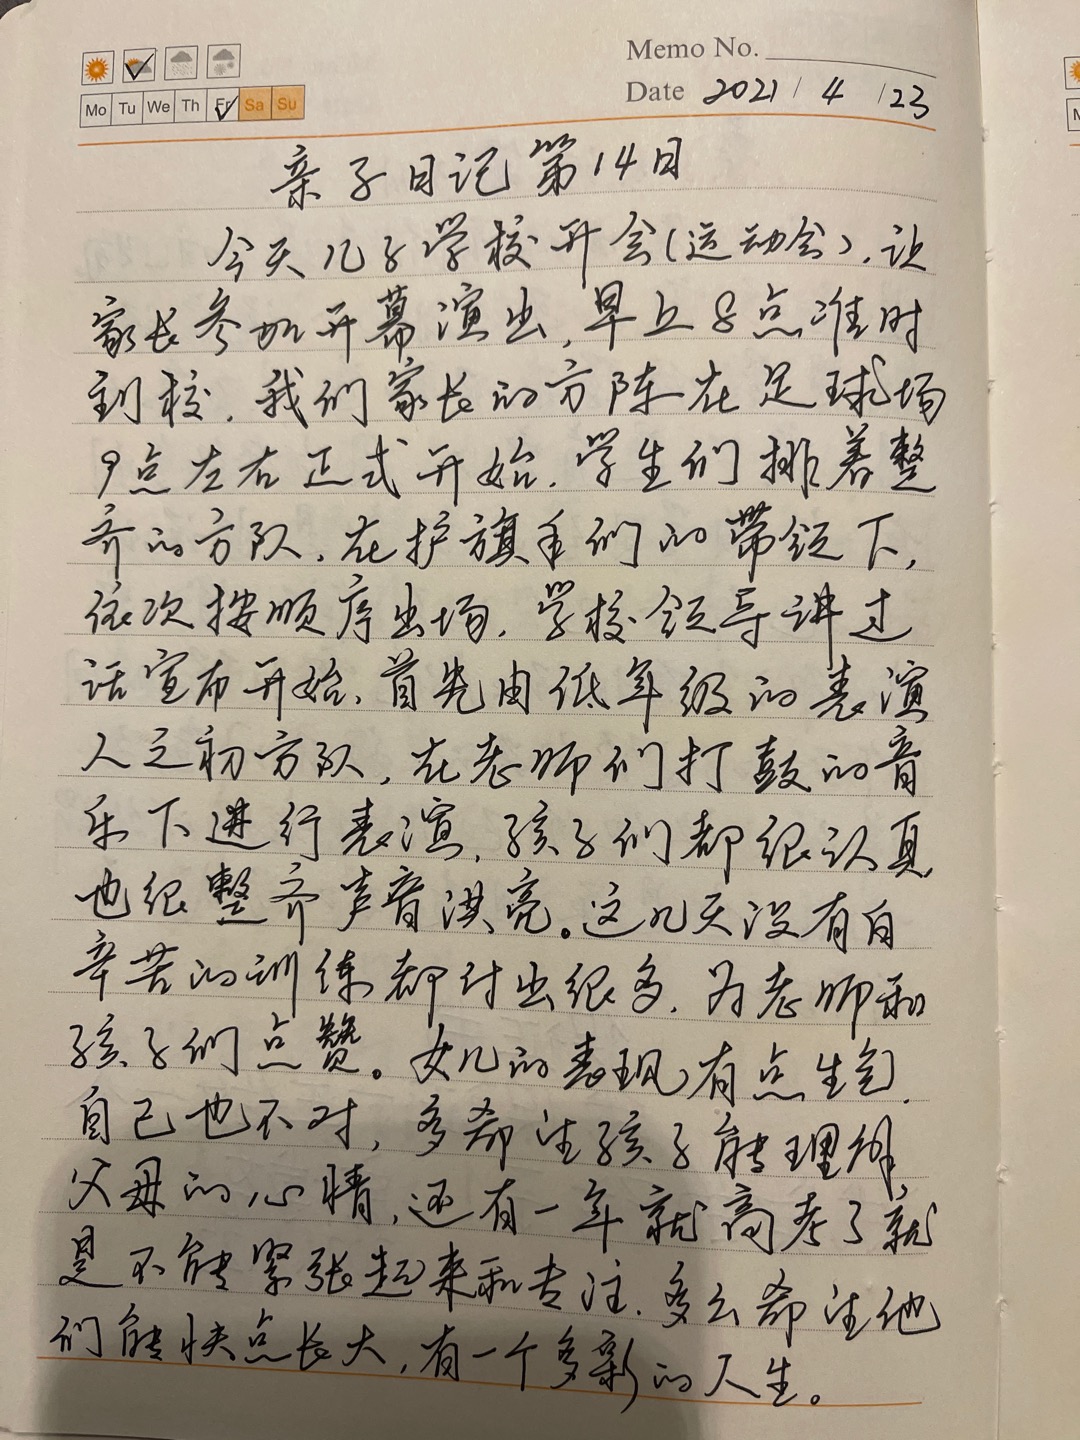 Memo No.
Mo Tu We Th Fr Sa Su
Date 2021 / 4 / 23
亲子日记第14日
今天儿子学校开会(运动会),让
家长参加开幕演出,早上8点准时
到校,我们家长的方阵在足球场
9点左右正式开始,学生们排着整
齐的方队,在护旗手们的带领下,
依次按顺序出场,学校领导讲过
话宣布开始,首先由低年级的表演
人之初方队,在老师们打鼓的音
乐下进行表演,孩子们都很认真
也很整齐声音洪亮。这几天没有白
辛苦的训练都付出很多,为老师和
孩子们点赞。女儿的表现有点生气,
自己也不对,多希望孩子能理解
父母的心情,还有一年就高考了就
是不能紧张起来和专注,多么希望他
们能快点长大,有一个多彩的人生。